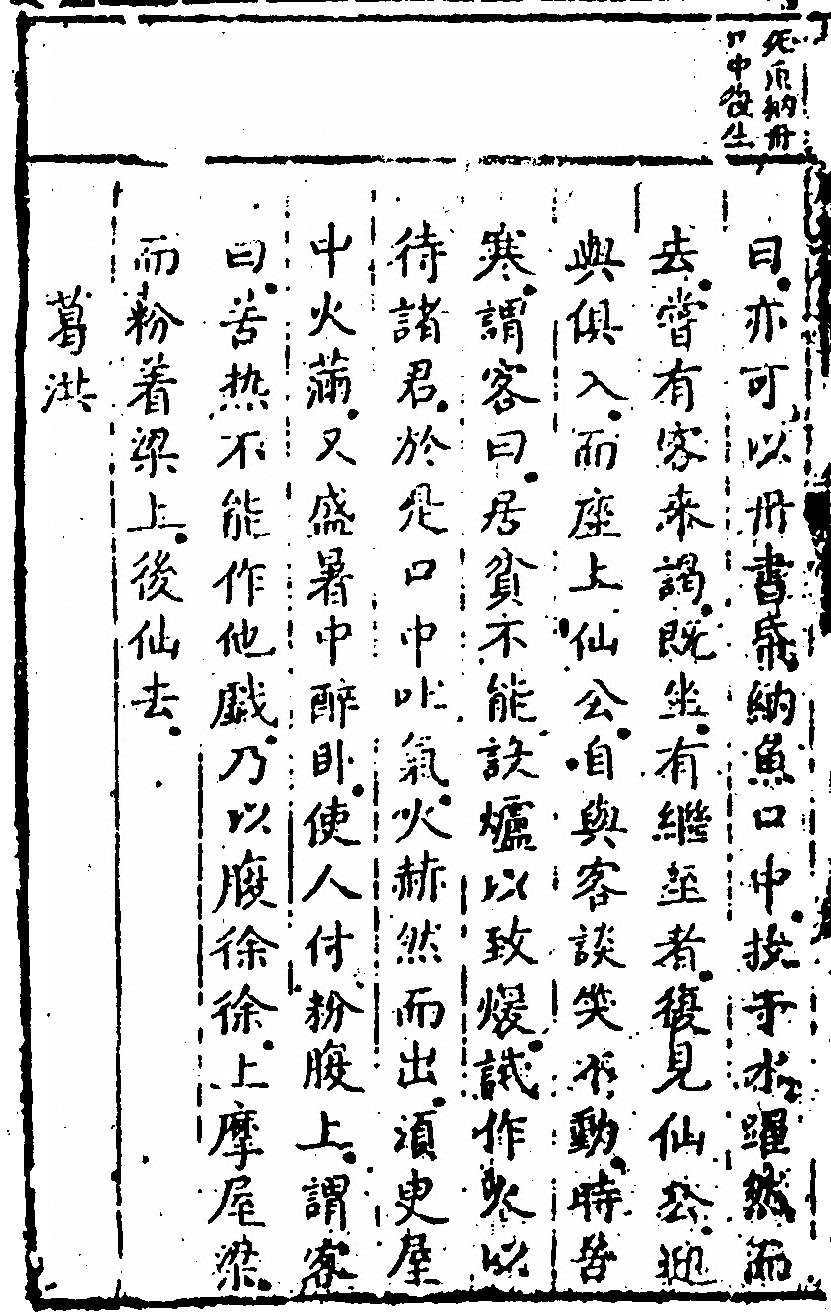 死魚納丹
口中復生
曰亦可以丹書紙納魚口中投于水躍然而
去嘗有客來謁既坐有繼至者復見仙公迎
與俱入而座上仙公自與客談笑不動時皆
寒謂客曰居貧不能設爐以致煖試作火以
待諸君於是口中吐氣火赫然而出須臾屋
中火滿又盛暑中醉卧使人付粉腹上謂客
曰苦热不能作他戲乃以腹徐徐上摩屋梁
而粉着梁上後仙去
葛洪